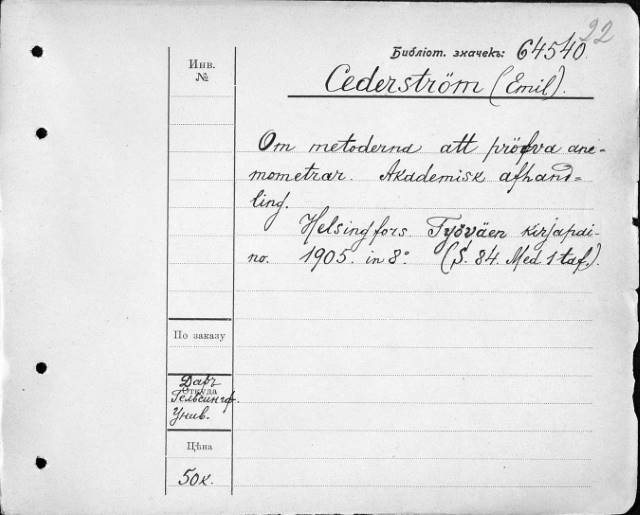 22
Библіот. значекъ: 64540
Инв.
№
Cederström (Emil).
Om metoderna att pröfva ane-
mometrar. Akademisk afhand=
ling.
Helsingfors Työväen kirjapai-
no. 1905. in 8°. (S. 84. Med 1 taf.).
По заказу
Даръ
Откуда
Гельсингф.
Унив.
Цѣна
50к.